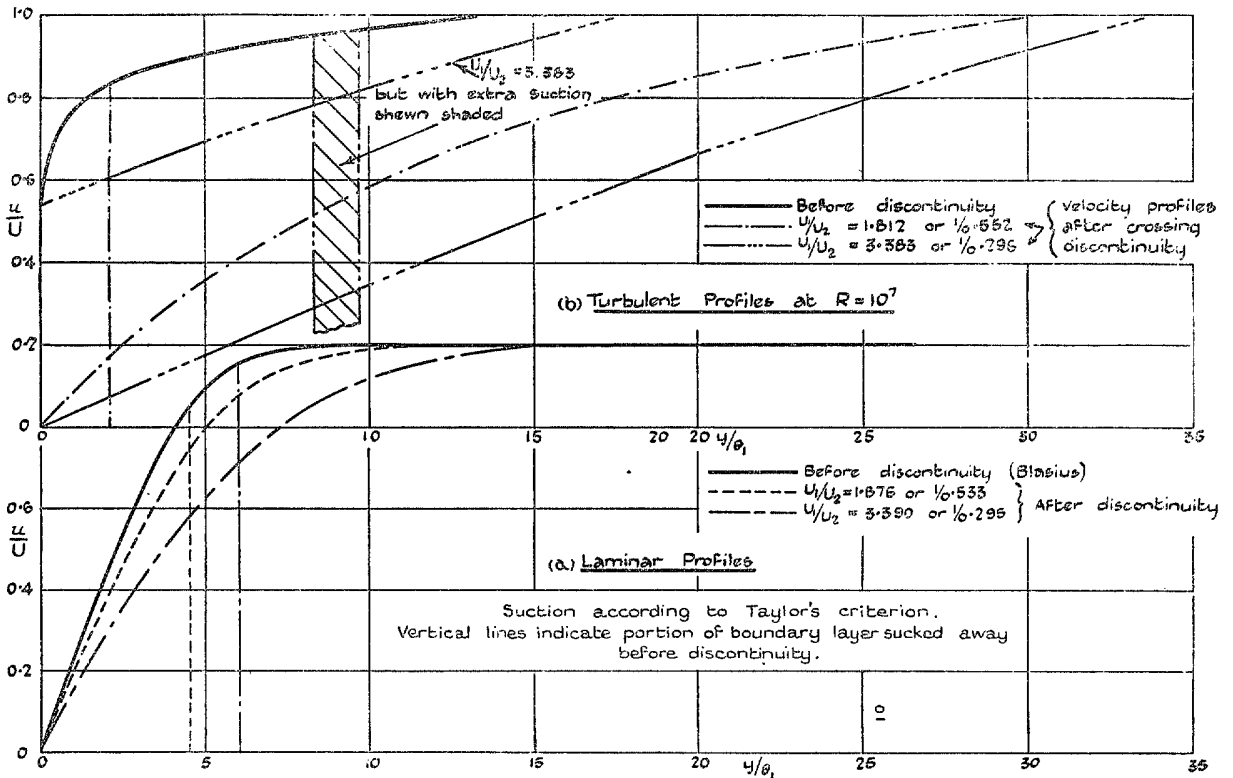 1.0
0.8
0.6
u/U
0.4
0.2
0
U1/U2 = 3.383
but with extra suction
shewn shaded
Before discontinuity
U1/U2 = 1.812 or 1/0.552
U1/U2 = 3.383 or 1/0.296
velocity profiles
after crossing
discontinuity
(b) Turbulent Profiles at R = 10^7
0 5 10 15 20 20 y/θ1 25 30 35
Before discontinuity (Blasius)
U1/U2 = 1.876 or 1/0.533
U1/U2 = 3.390 or 1/0.295
} After discontinuity
0.6
u/U
0.4
0.2
0
(a) Laminar Profiles
Suction according to Taylor's criterion.
Vertical lines indicate portion of boundary layer sucked away
before discontinuity.
0
0 5 10 15 20 y/θ1 25 30 35